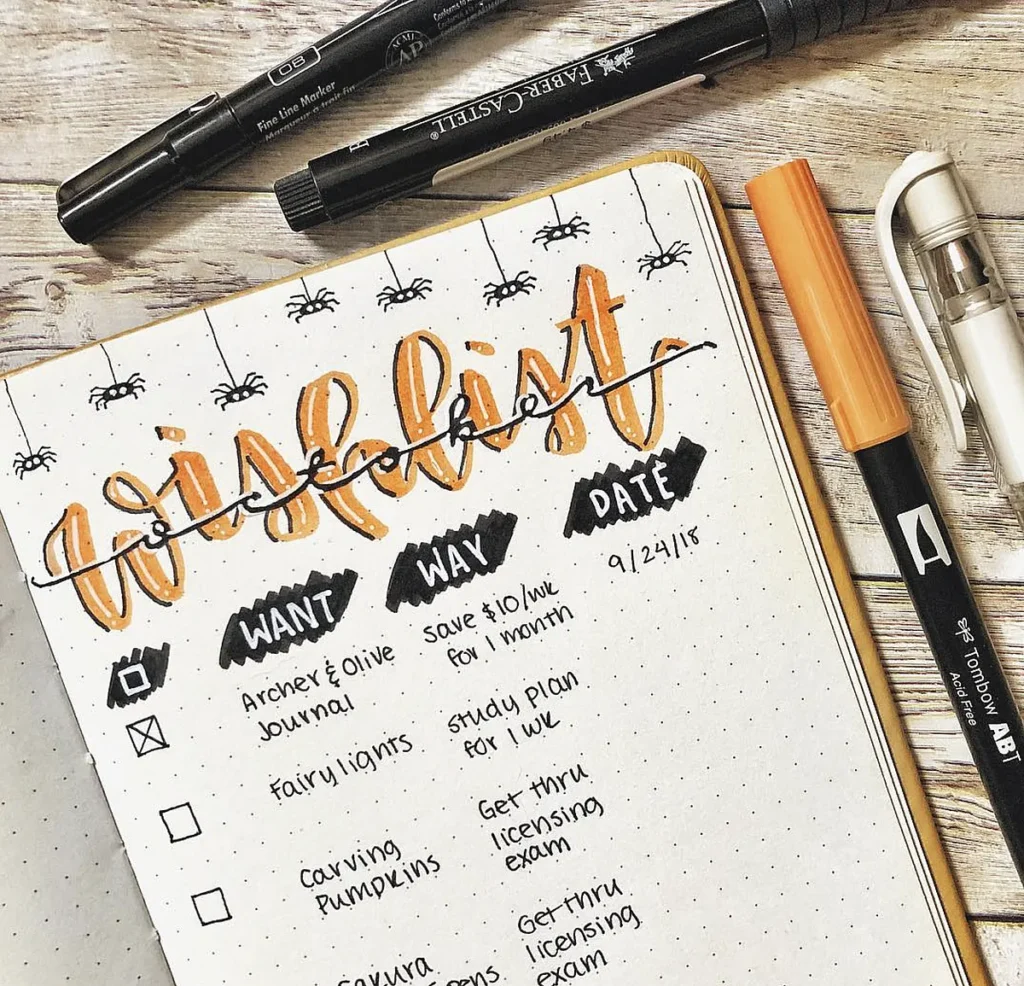 08
Fine Line Marker
Marqueur à trait fin
ACMI
AP
Conforms to
FABER-CASTELL®
wishlist
october
WANT
WAY
DATE
Archer & Olive
Journal
save $10/wk
for 1 month
9/24/18
Fairy lights
study plan
for 1 wk
carving
Pumpkins
Get thru
licensing
exam
Sakura
Get thru
licensing
exam
Tombow ABT
Acid Free